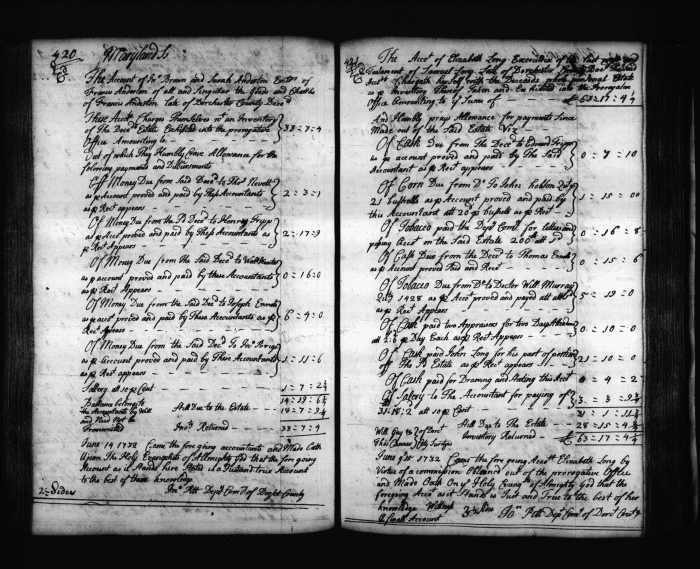 420 Maryland Ss
The Account of Jno Brown and Sarah Anderton Extrs of
Francis Anderton of all and Singular the Goods and Chattles
of Francis Anderton late of Dorchester County Decd
These Acctts Charges Themselves wth an Inventory
of The Decd Estate Exhibited into the prerogative
Office Amounting to 33=7=9
Out of which They Humbly Crave Allowance for the
following payments and Disbursments
Off Money Due from Said Decd to Thos Nevett
as p Account proved and paid by These Accountants
as p Rect appears 2=3=1
Of Money Due from the Sd Decd to Henry
as p Acct proved and paid by These Accountants as
p Rect Appears 2=17=9
Of Money Due from the Said Decd to
as p account proved and paid by these Accountants
as p Rect Appears 0=16=0
Of Money Due from the Said Decd to Joseph Ennalls
as p acct proved and paid by These Accountants as
p Rect Apears 6=4=0
Of Money Due from the Said Decd To Jno
as p account proved and paid by These Accountants
as p Rect appears 1=11=6
Sallery at 10 p Cent 1=7=2¼
14=19=6¼
Ballance Coming to
the Accountants by Will
and Need Not be
Transmitted
Still Due to the Estate 18=7=9¼
Invty Returned 33=7=9
June 14 1732 Came the foregoing accountants and Made Oath
Upon The Holy Evangelists of Allmighty God that the foregoing
Account as it Stands here Stated is a Just and true Account
to the best of there knowledge
2½ Sides Jno Pitt Depty Comry of Dorst County
The Acct of Elizabeth Long Executrix of the last Will and
Testament of Samuel Long Late of Dorchester County Decd
Acctt Chargeth herself with the Deceaseds personal Estate
as p Inventory Thereof Taken and Exhibited into the Prerogative
Office Amounting to ye Sume of £63=17=4¼
And Humbly prays Allowance for payments Since
Made out of the Said Estate Viz
Of Cash Due from The Decd to Edward
as p account proved and paid by The Said
Accountant as p Rect appears 0=7=10
Of Corn Due from Do To John
21 bushells as p Account proved and paid by
this Accountant att 20d p bushell as p Rect 1=15=00
Of Tobacco paid the Depty Comry for
passing Acct on the Said Estate 200lb att 0=16=8
Of Cash Due from the Decd to Thomas Ennalls
as p Account proved Paid and Rect 0=15=6
Of Tobacco Due from Do to Doctor Will Murray
1428 as p Acct proved and payed att 5=19=0
Of Cash paid two Appraisers for two Days
att 2:6 p Day Each as p Rect Appears 0=10=0
Of Cash paid John Long for his part of portion
Off The Sd Estate as p Rect appears 21=10=0
Of Cash paid for Drawing and Stating this Acct 0=4=2
Of Salery to The Accountant for paying
31:18:2 at 10 p Cent 3=3=9¾
Still Due To the Estate
Inventory Returned £63=17=4¼
June 1732 Came the foregoing Acctt Elizabeth Long by
Virtue of a commission Obtained out of the prerogative Office
and Made Oath On ye Holy Evangts of Almighty God that the
foregoing Acct as it Stands is Just and True to the best of her
knowledge
Jno Pitt Depty Comry of Dorst County